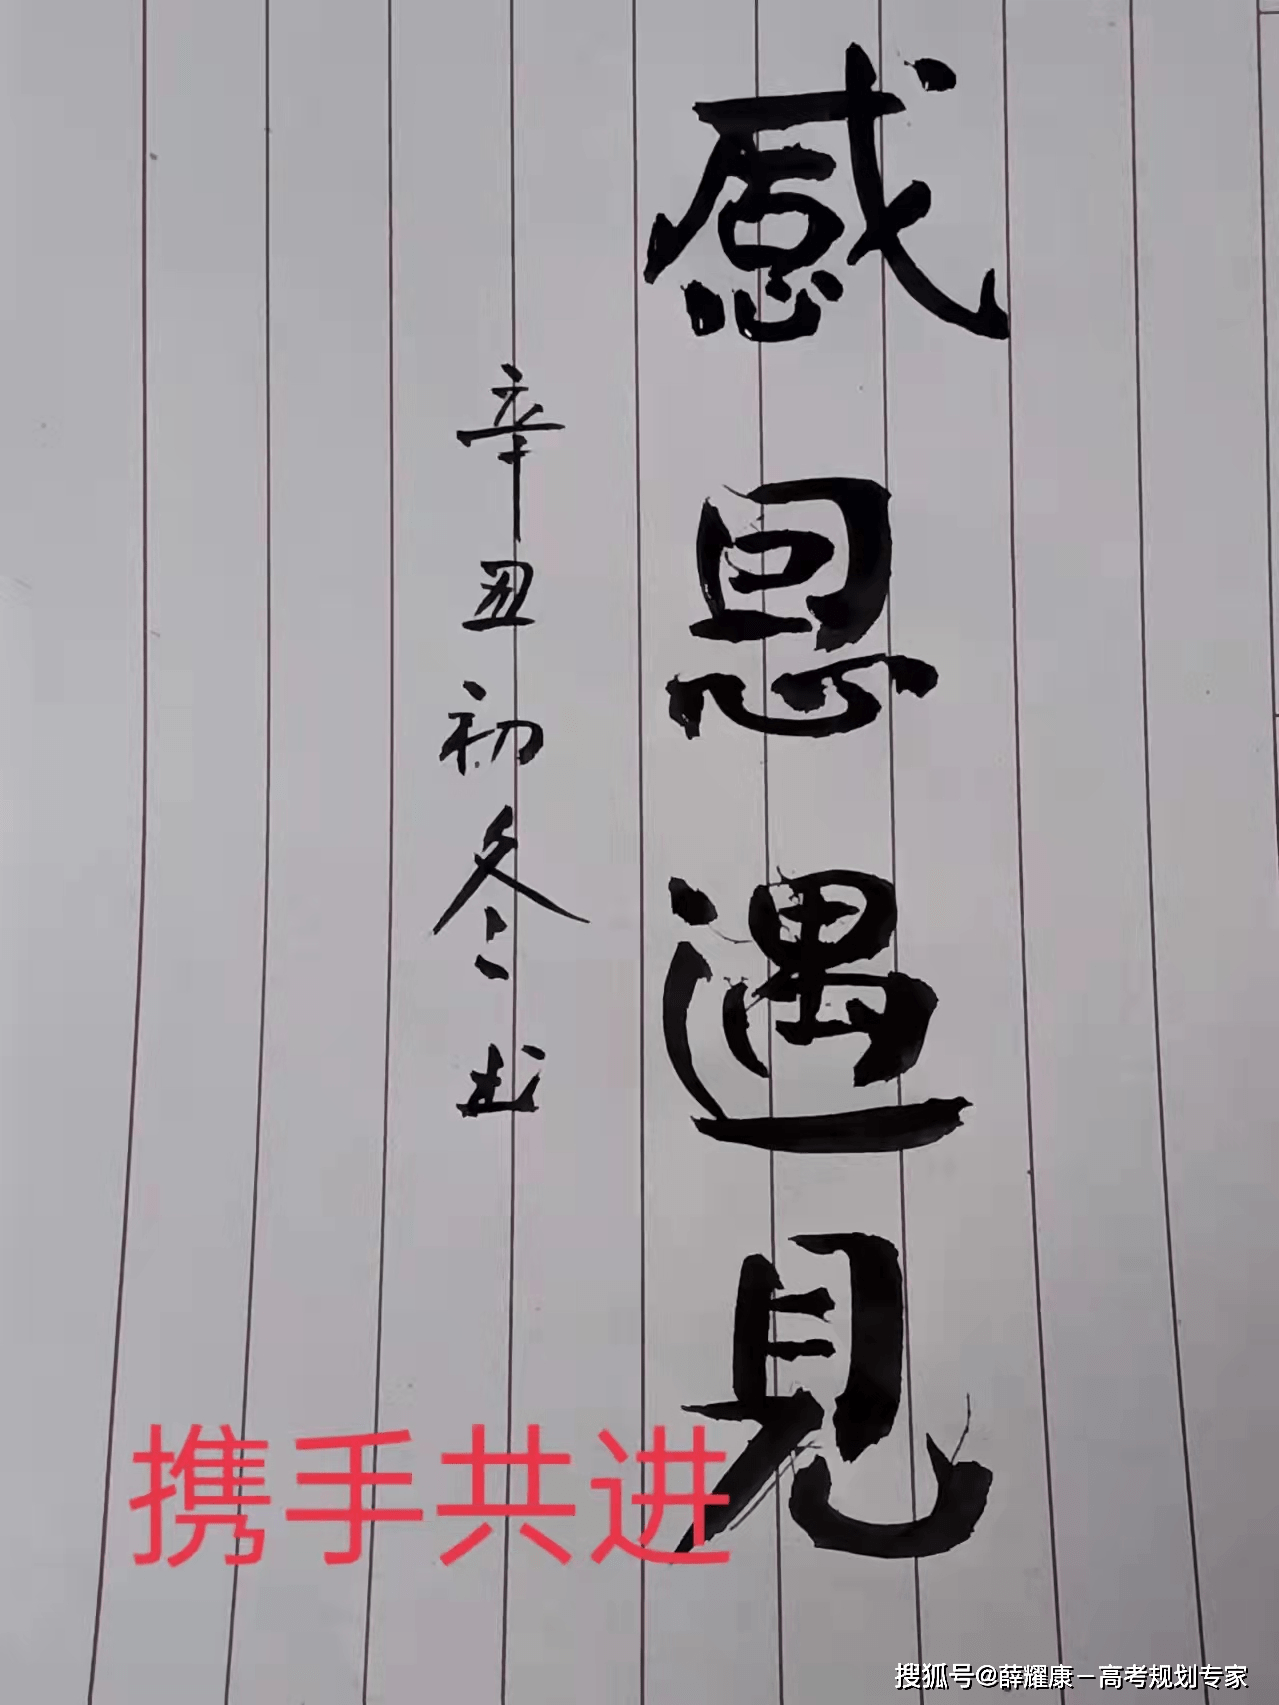 感恩遇見
辛丑初冬
携手共进
搜狐号@薛耀康－高考规划专家